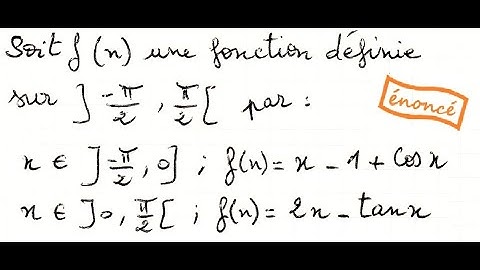 Soit f(x) une fonction définie
sur ]-π/2, π/2[ par :
énoncé
x ∈ ]-π/2, 0] ; f(x) = x - 1 + cos x
x ∈ ]0, π/2[ ; f(x) = 2x - tan x